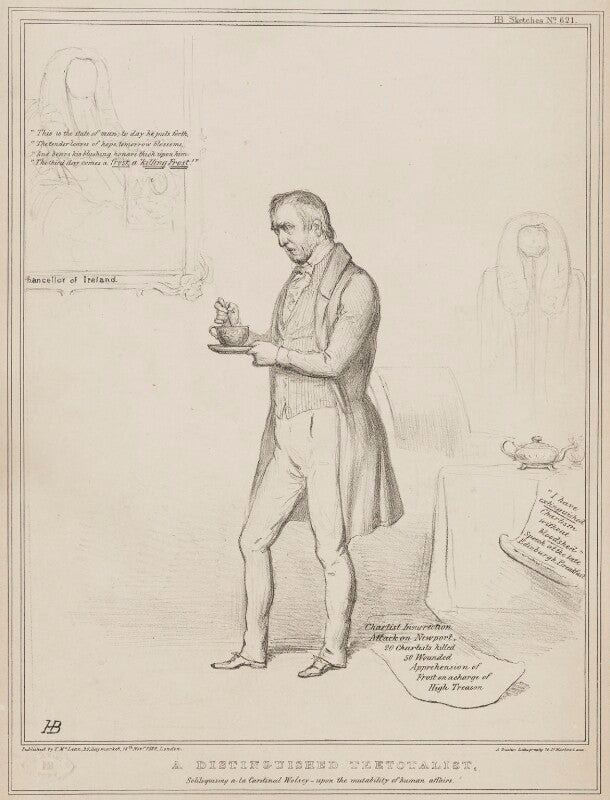 HB Sketches No. 621.
"This is the state of man; to day he puts forth,
"The tender leaves of hope, tomorrow blossoms,
"And bears his blushing honors thick upon him
"The third day comes a Frost, a killing Frost!"
hancellor of Ireland.
"I have
extinguished
Chartism
without
bloodshed"
Speech at the late
Edinburgh Breakfast
Chartist Insurrection
Attack on Newport,
20 Chartists killed
50 Wounded
Apprehension of
Frost on a charge of
High Treason
HB
Published by T. McLean, 26, Haymarket, 18th Novr. 1839, London.
A. Ducôte's Lithography 70, St Martins Lane.
A DISTINGUISHED TEETOTALIST,
Soliloquising a-la Cardinal Wolsey – upon the mutability of human affairs.